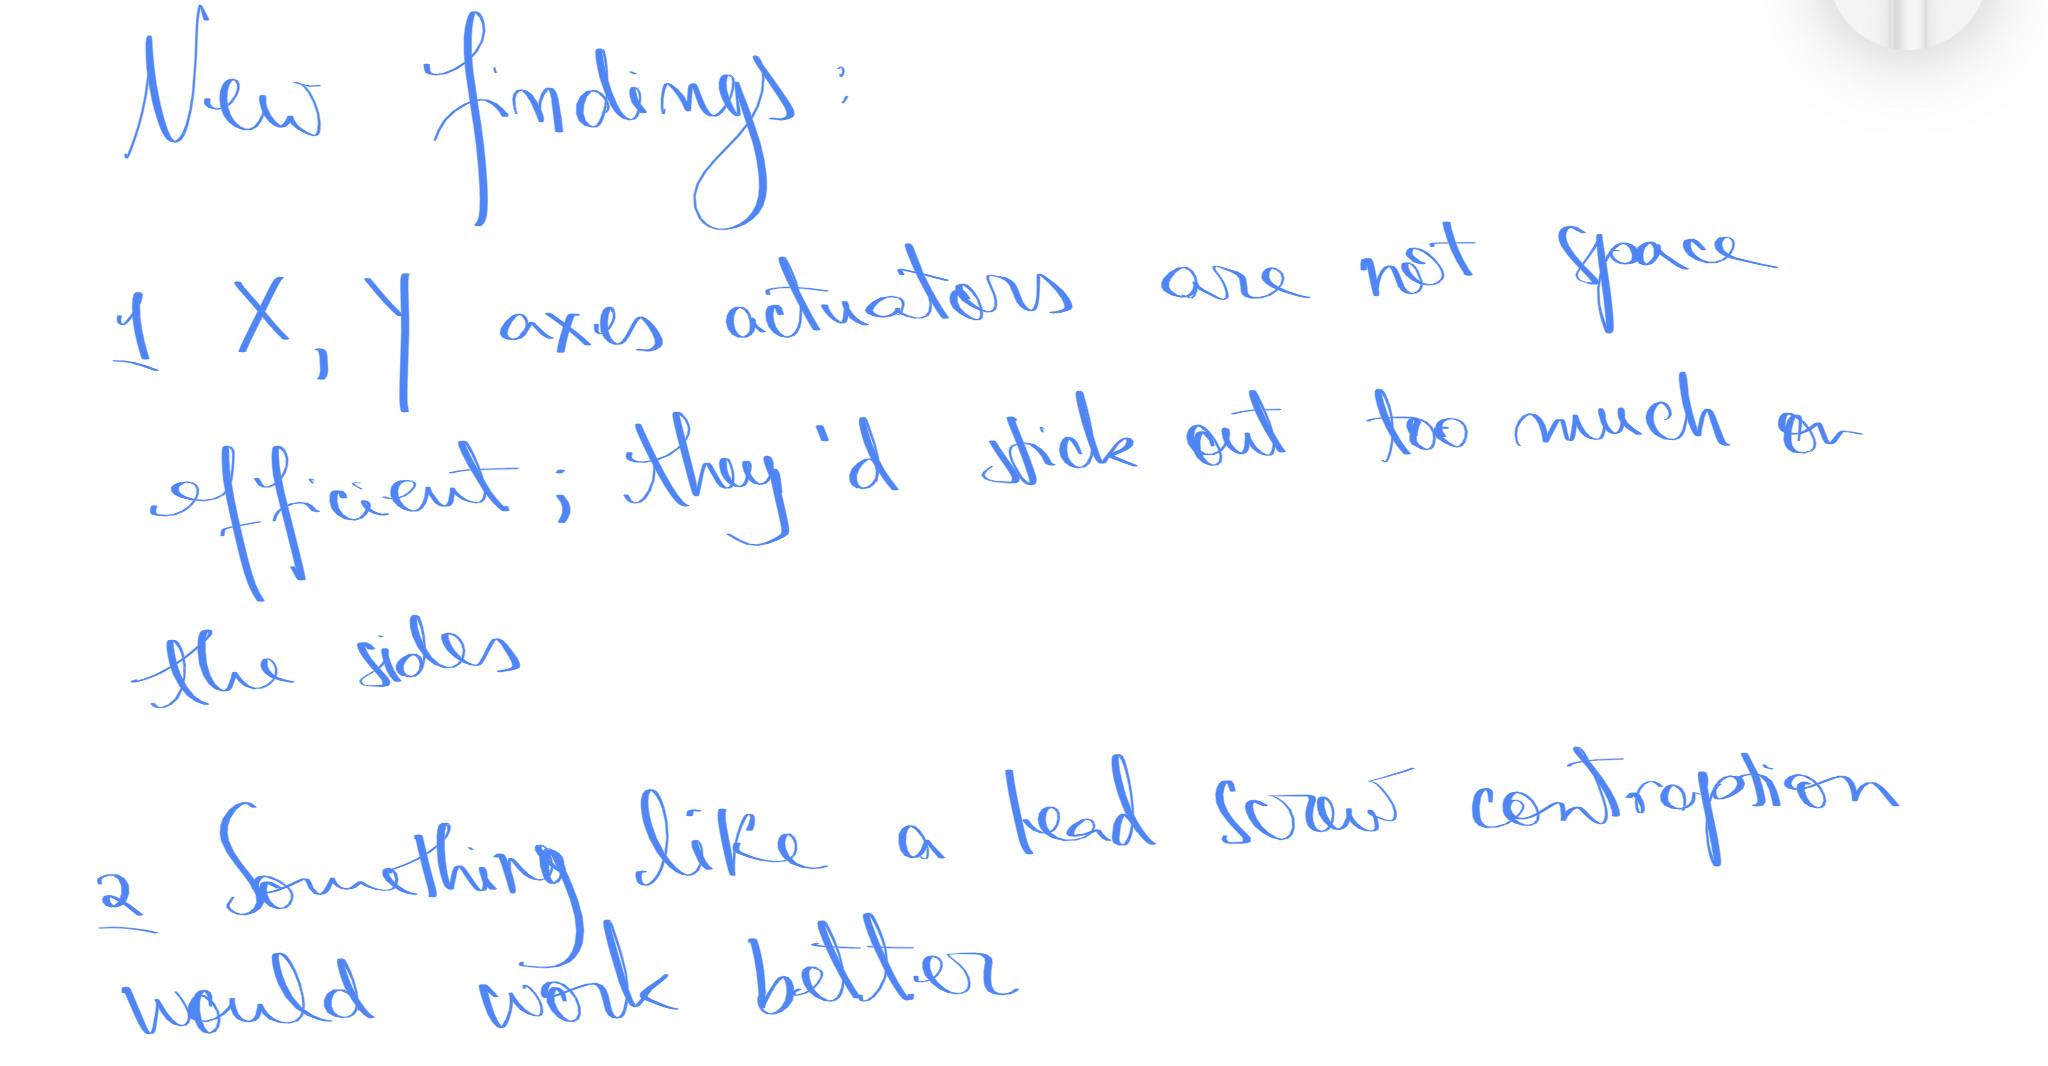 New findings:
1 X, Y axes actuators are not space
efficient; they'd stick out too much on
the sides
2 Something like a lead screw contraption
would work better